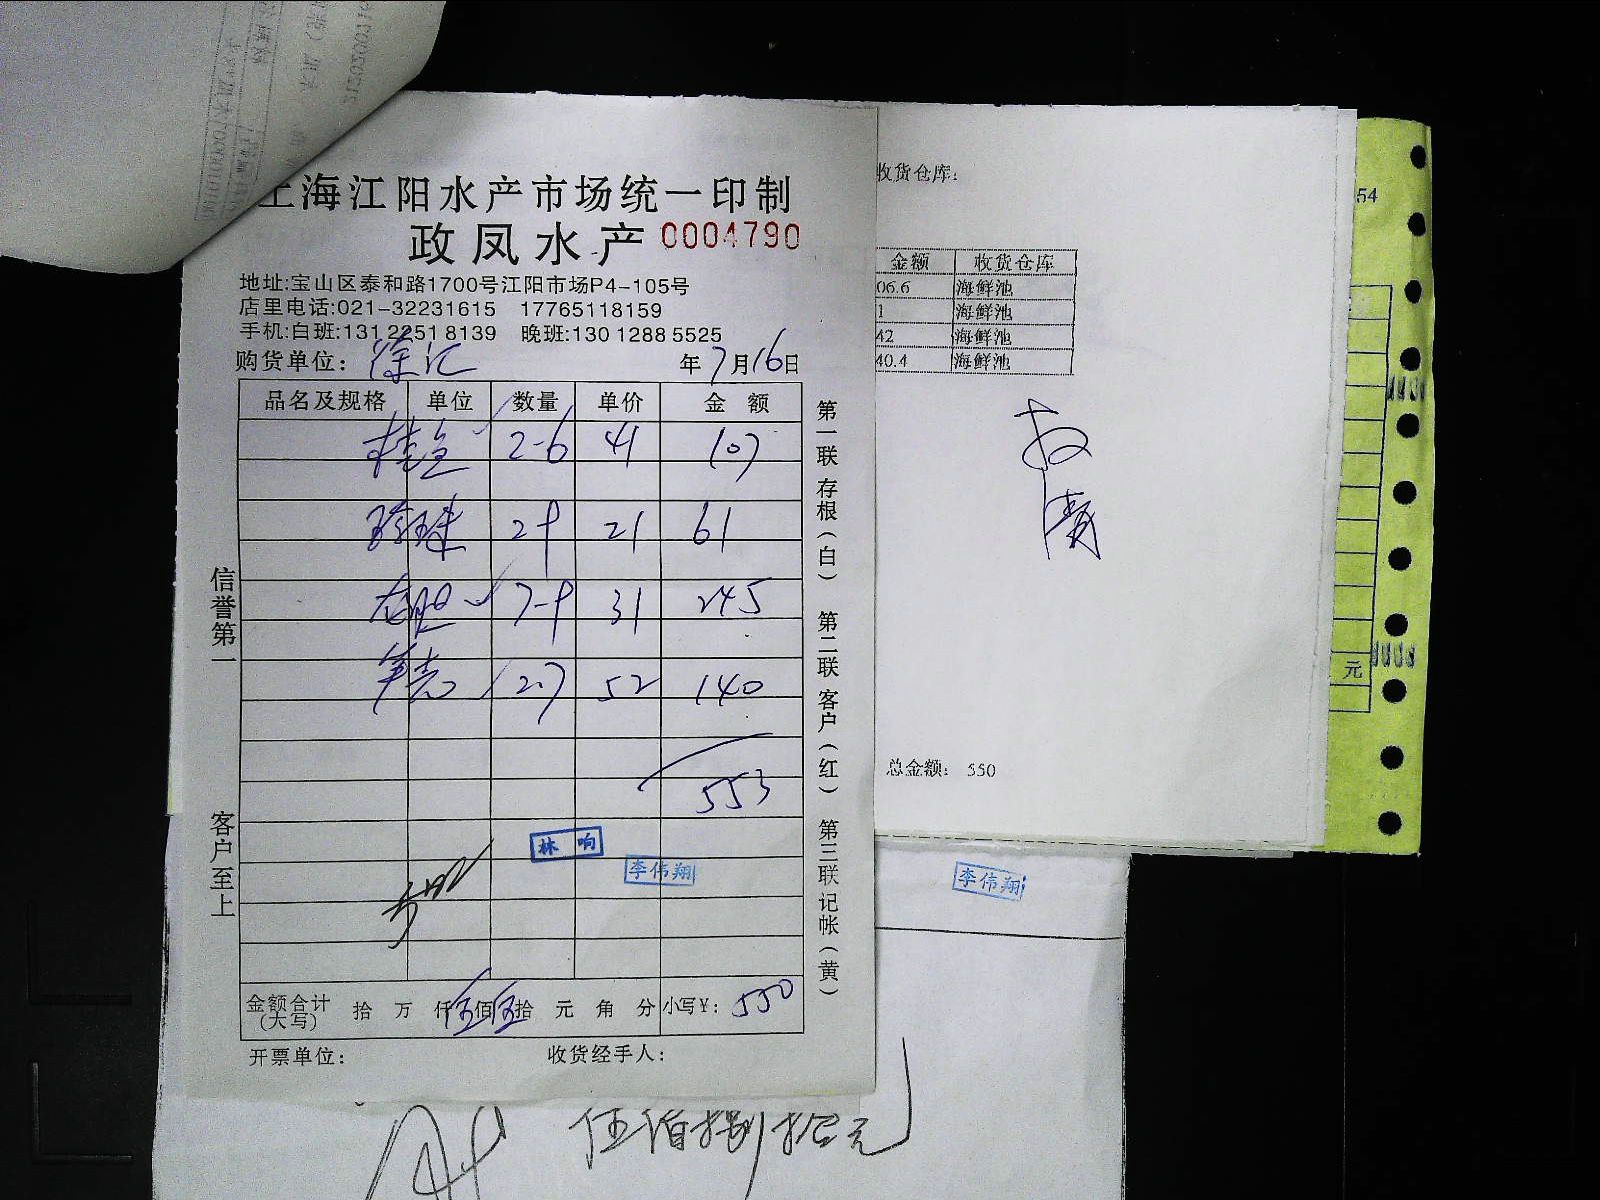 上海江阳水产市场统一印制
政凤水产 0004790
地址:宝山区泰和路1700号江阳市场P4-105号
店里电话:021-32231615 17765118159
手机:白班:131 2251 8139 晚班:130 1288 5525
购货单位: 徐汇 年7月16日
品名及规格 单位 数量 单价 金额
桂鱼 2-6 41 107
珍珠 29 21 61
龙胆 7-9 31 245
笋壳 2.7 52 140
553
林响
李伟翔
金额合计(大写) 拾 万 仟 伍佰 伍拾 元 角 分 小写¥: 550
开票单位: 收货经手人:
信誉第一 客户至上
第一联 存根(白) 第二联 客户(红) 第三联 记帐(黄)
收货仓库:
金额 收货仓库
06.6 海鲜池
1 海鲜池
42 海鲜池
40.4 海鲜池
总金额: 550
54
元
李伟翔
伍佰捌拾元